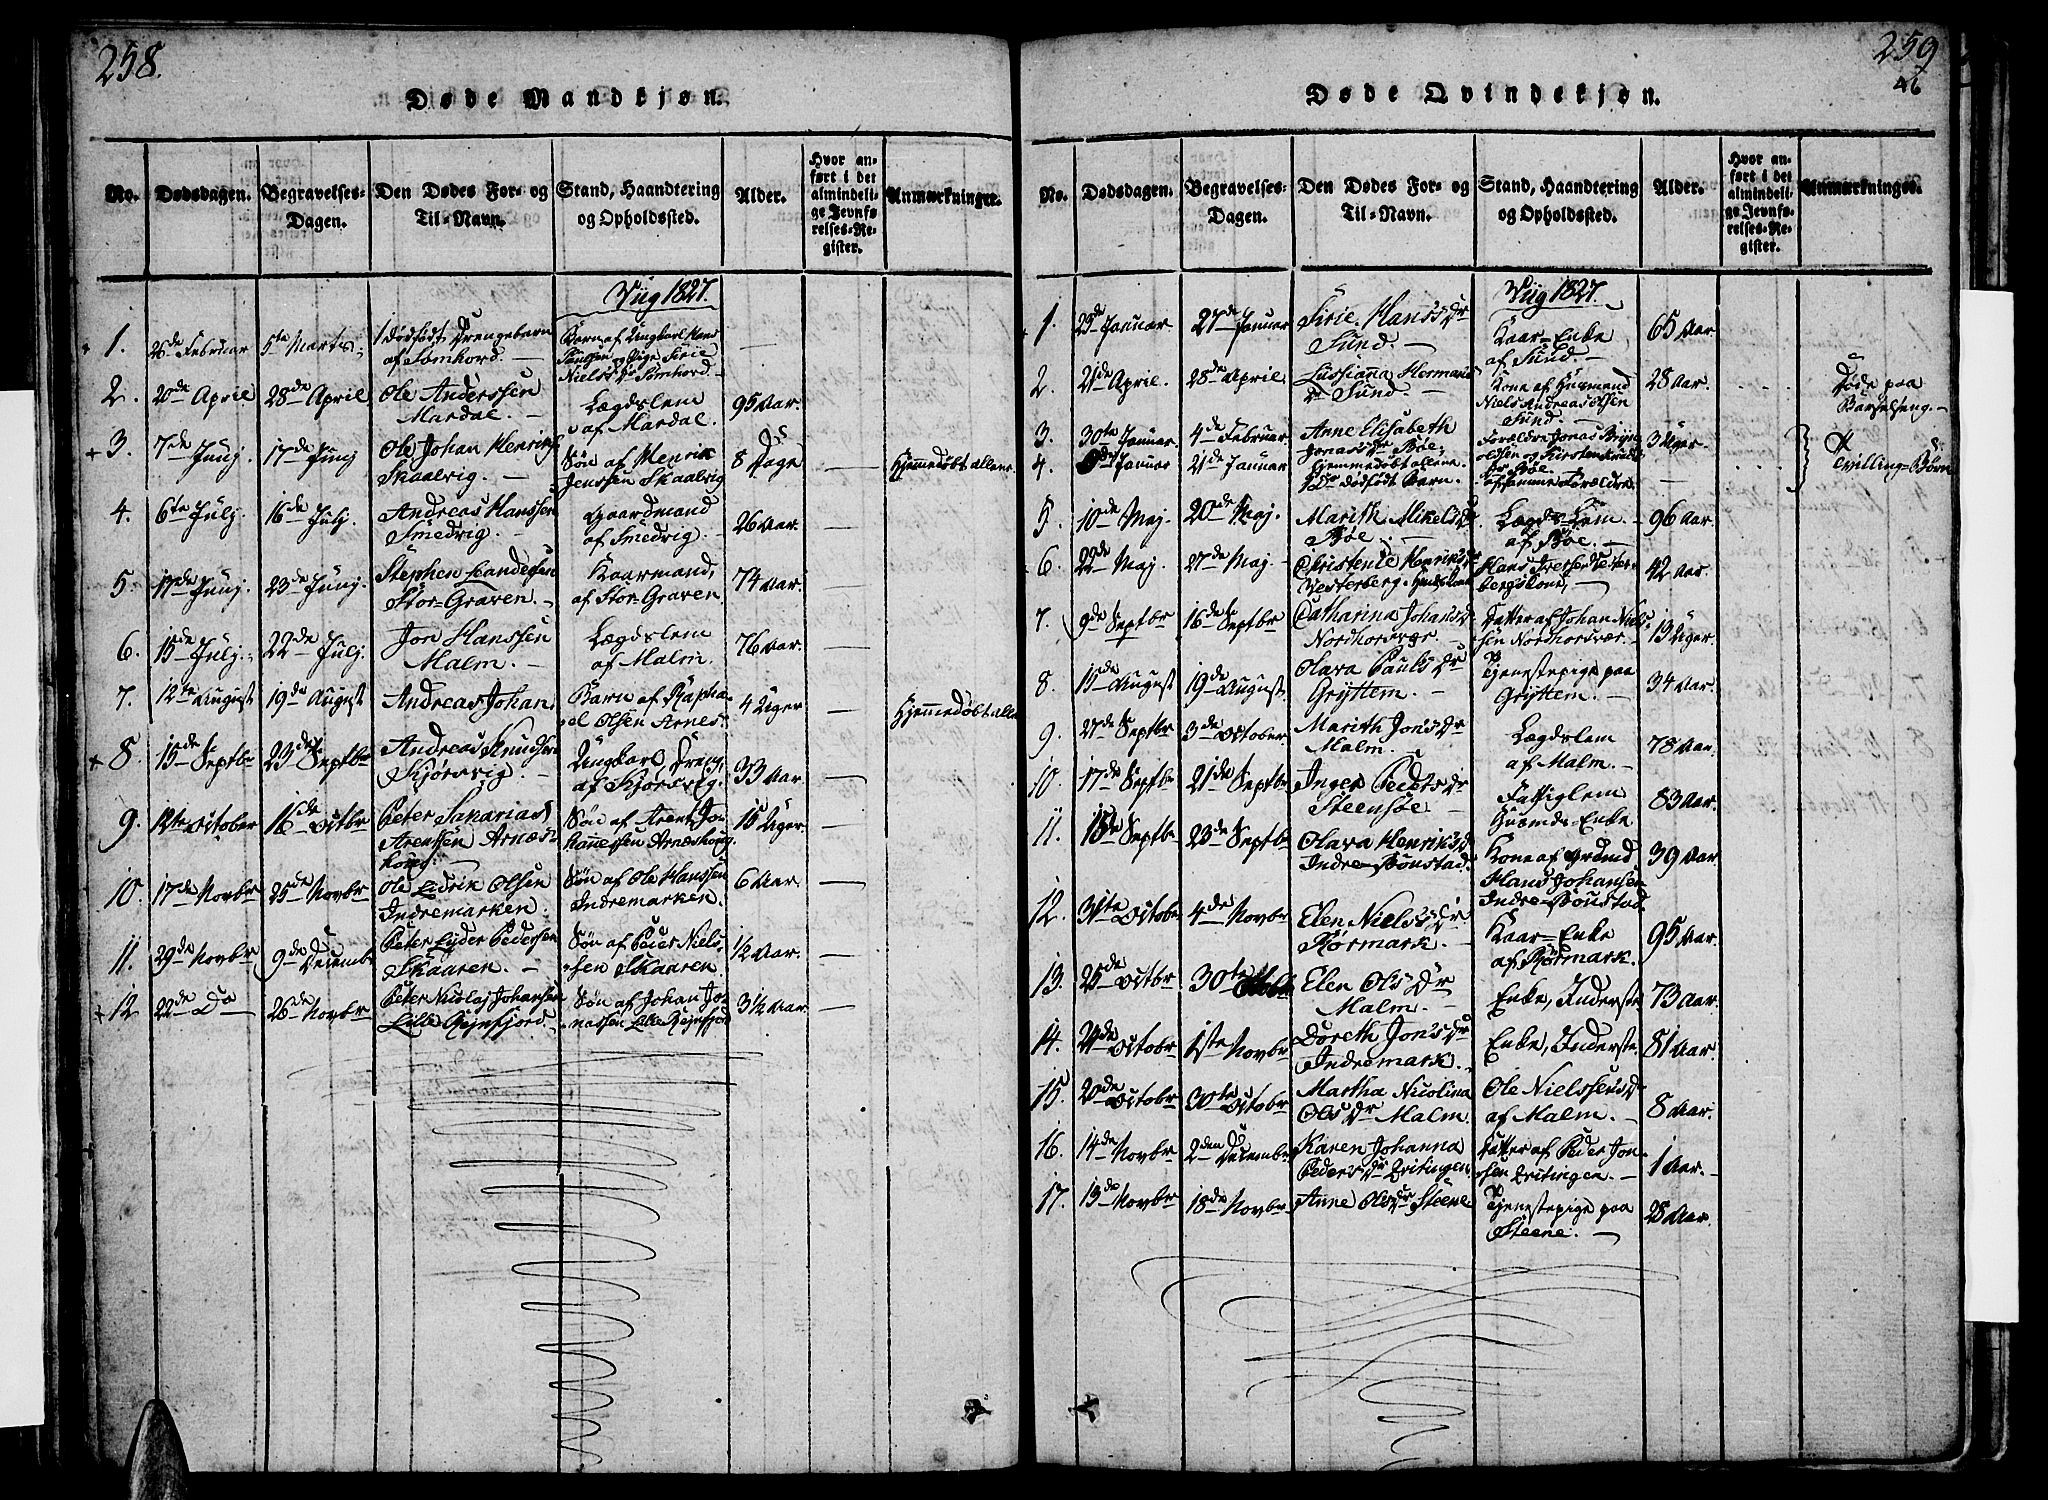 258.
Døde Mandkjøn.
No. Dødsdagen. Begravelses-Dagen. Den Dødes For- og Til-Navn. Stand, Haandtering og Opholdssted. Alder. Hvor anført i det almindelige Jevnførelses-Register. Anmærkninger.
Viig 1827.
1. 26de Februar 5te Marts 1 dødfødt Drengebarn Barn af Ungkarl Hans
af Somhord. — og Pige Sirie
Nielsdr Somhord. —
2. 20de April 28de April Ole Anderssen Lægdslem 95 Aar.
Mardal. — af Mardal.
3. 7de Junj 17de Junj Ole Johan Henrik Søn af Henrik 8 Dage Hjemmedøbt allene
Skaalvig. — Jenssen Skaalvig
4. 6te Julj. 16de Julj. Andreas Hanssen Gaardmand 26 Aar.
Smedvig. — af Smedvig. —
5. 17de Junj. 23de Junj. Stephen Kaarmand, 74 Aar.
Stor-Graven — af Stor-Graven.
6. 15de Julj. 22de Julj. Jon Hanssen Lægdslem 76 Aar.
Malm. — af Malm.
7. 12te August 19de August Andreas Johan Barn af Rapha- 4 Uger Hjemmedøbt allene
el Olsen Arnes
8. 15de Septbr 23de Septbr Andreas Knudsen Ungkarl, Dreng 33 Aar.
Kjørsvig. — af Kjørsvig.
9. 12te October 16de Octbr Peter Sakarias Søn af Arent Jo- 15 Uger.
Arentsen Arnæs- hannessen Arneshoug.
houg. —
10. 17de Novbr 25de Novbr Ole Edrik Olsen Søn af Ole Hanssen 6 Aar.
Indremarken. Indremarken.
11. 29de Novbr 9de Decembr Peter Lyder Pedersen Søn af Peder Niels- 1/2 Aar.
Skaaren. — sen Skaaren.
12 22de Do — 26de Novbr Peter Nicolaj Johansen Søn af Johan Jo- 3 1/2 Aar.
Lille Rejnfjord. nassen Lille Rejnfjord
259
Døde Qvindekjøn.
No. Dødsdagen. Begravelses-Dagen. Den Dødes For- og Til-Navn. Stand, Haandtering og Opholdssted. Alder. Hvor anført i det almindelige Jevnførelses-Register. Anmærkninger.
Viig 1827.
1. 23de Januar 27de Januar Sirie Hansdr Kaar-Enke 65 Aar.
Sund. — af Sund. —
2. 21de April. 28de April Lussianna Hermans Kone af Husmand 28 Aar. Døde paa
dr Sund. — Niels Andreas Olsen Barselseng. —
Sund. —
3. 30te Januar. 4de Februar Anne Elisabeth Forældre Jonas Bryn- 3 Uger Tvilling-Børn
Jonasdr Bøe, oldsen og Kirsten
hjemmedøbt allene. Bøe.
4. 9de Januar 21de Januar 1 dødfødt Barn. af samme Forældre. —
5. 10de Maj. 20de Maj. Marith Mikelsdr Lægds-Lem. 96 Aar.
Bøe. — af Bøe. —
6. 22de Maj. 27de Maj Christense Henriksdr Hans Iversen Vester- 42 Aar.
Vesterberg bergs Kone, —
7. 9de Septbr 16de Septbr Catharina Johansdr Datter af Johan Niels- 13 Uger
Nordhorsvær. — sen Nordhorsvær. —
8. 15de August 19de August Olava Paulsdr Tjenestepige paa 34 Aar.
Gryttem. — Gryttem. —
9. 27de Septbr 3de October. Marith Jonsdr Lægdslem 78 Aar.
Malm. — af Malm. —
10. 17de Septbr 21de Septbr Inger Pedersdr Fattiglem 83 Aar.
Steensøe. — Husmds-Enke
11. 18de Septbr 23de Septbr. Olava Henriksdr Kone af Grdmd 39 Aar
Indre-Bønstad. Hans Johansen
Indre-Bønstad.
12. 31te October 4de Novbr Elen Nielsdr Kaar-Enke 95 Aar.
Rørmark. — af Rørmark.
13. 25de Octbr 30te Octbr Elen Olsdr Enke, Inderste 73 Aar.
Malm. —
14. 24de Octobr 1ste Novbr Doreth Jonsdr Enke, Inderste. 81 Aar.
Indremark. —
15. 20de Octobr 30te Octobr Martha Nicolina Ole Nielssens D. 8 Aar.
Olsdr Malm. af Malm. —
16. 14de Novbr 2den Decembr Karen Johanna Datter af Peder Jon- 1 Aar.
Pedersdr sen
17. 13de Novbr 18de Novbr Anne Olsdr Steene Tjenestepige paa 28 Aar.
Steene. —